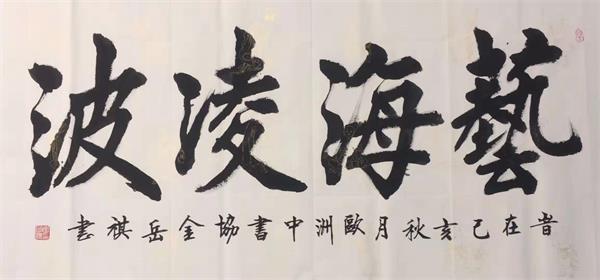 藝海凌波
旹在己亥秋月歐洲中書協金岳祺書